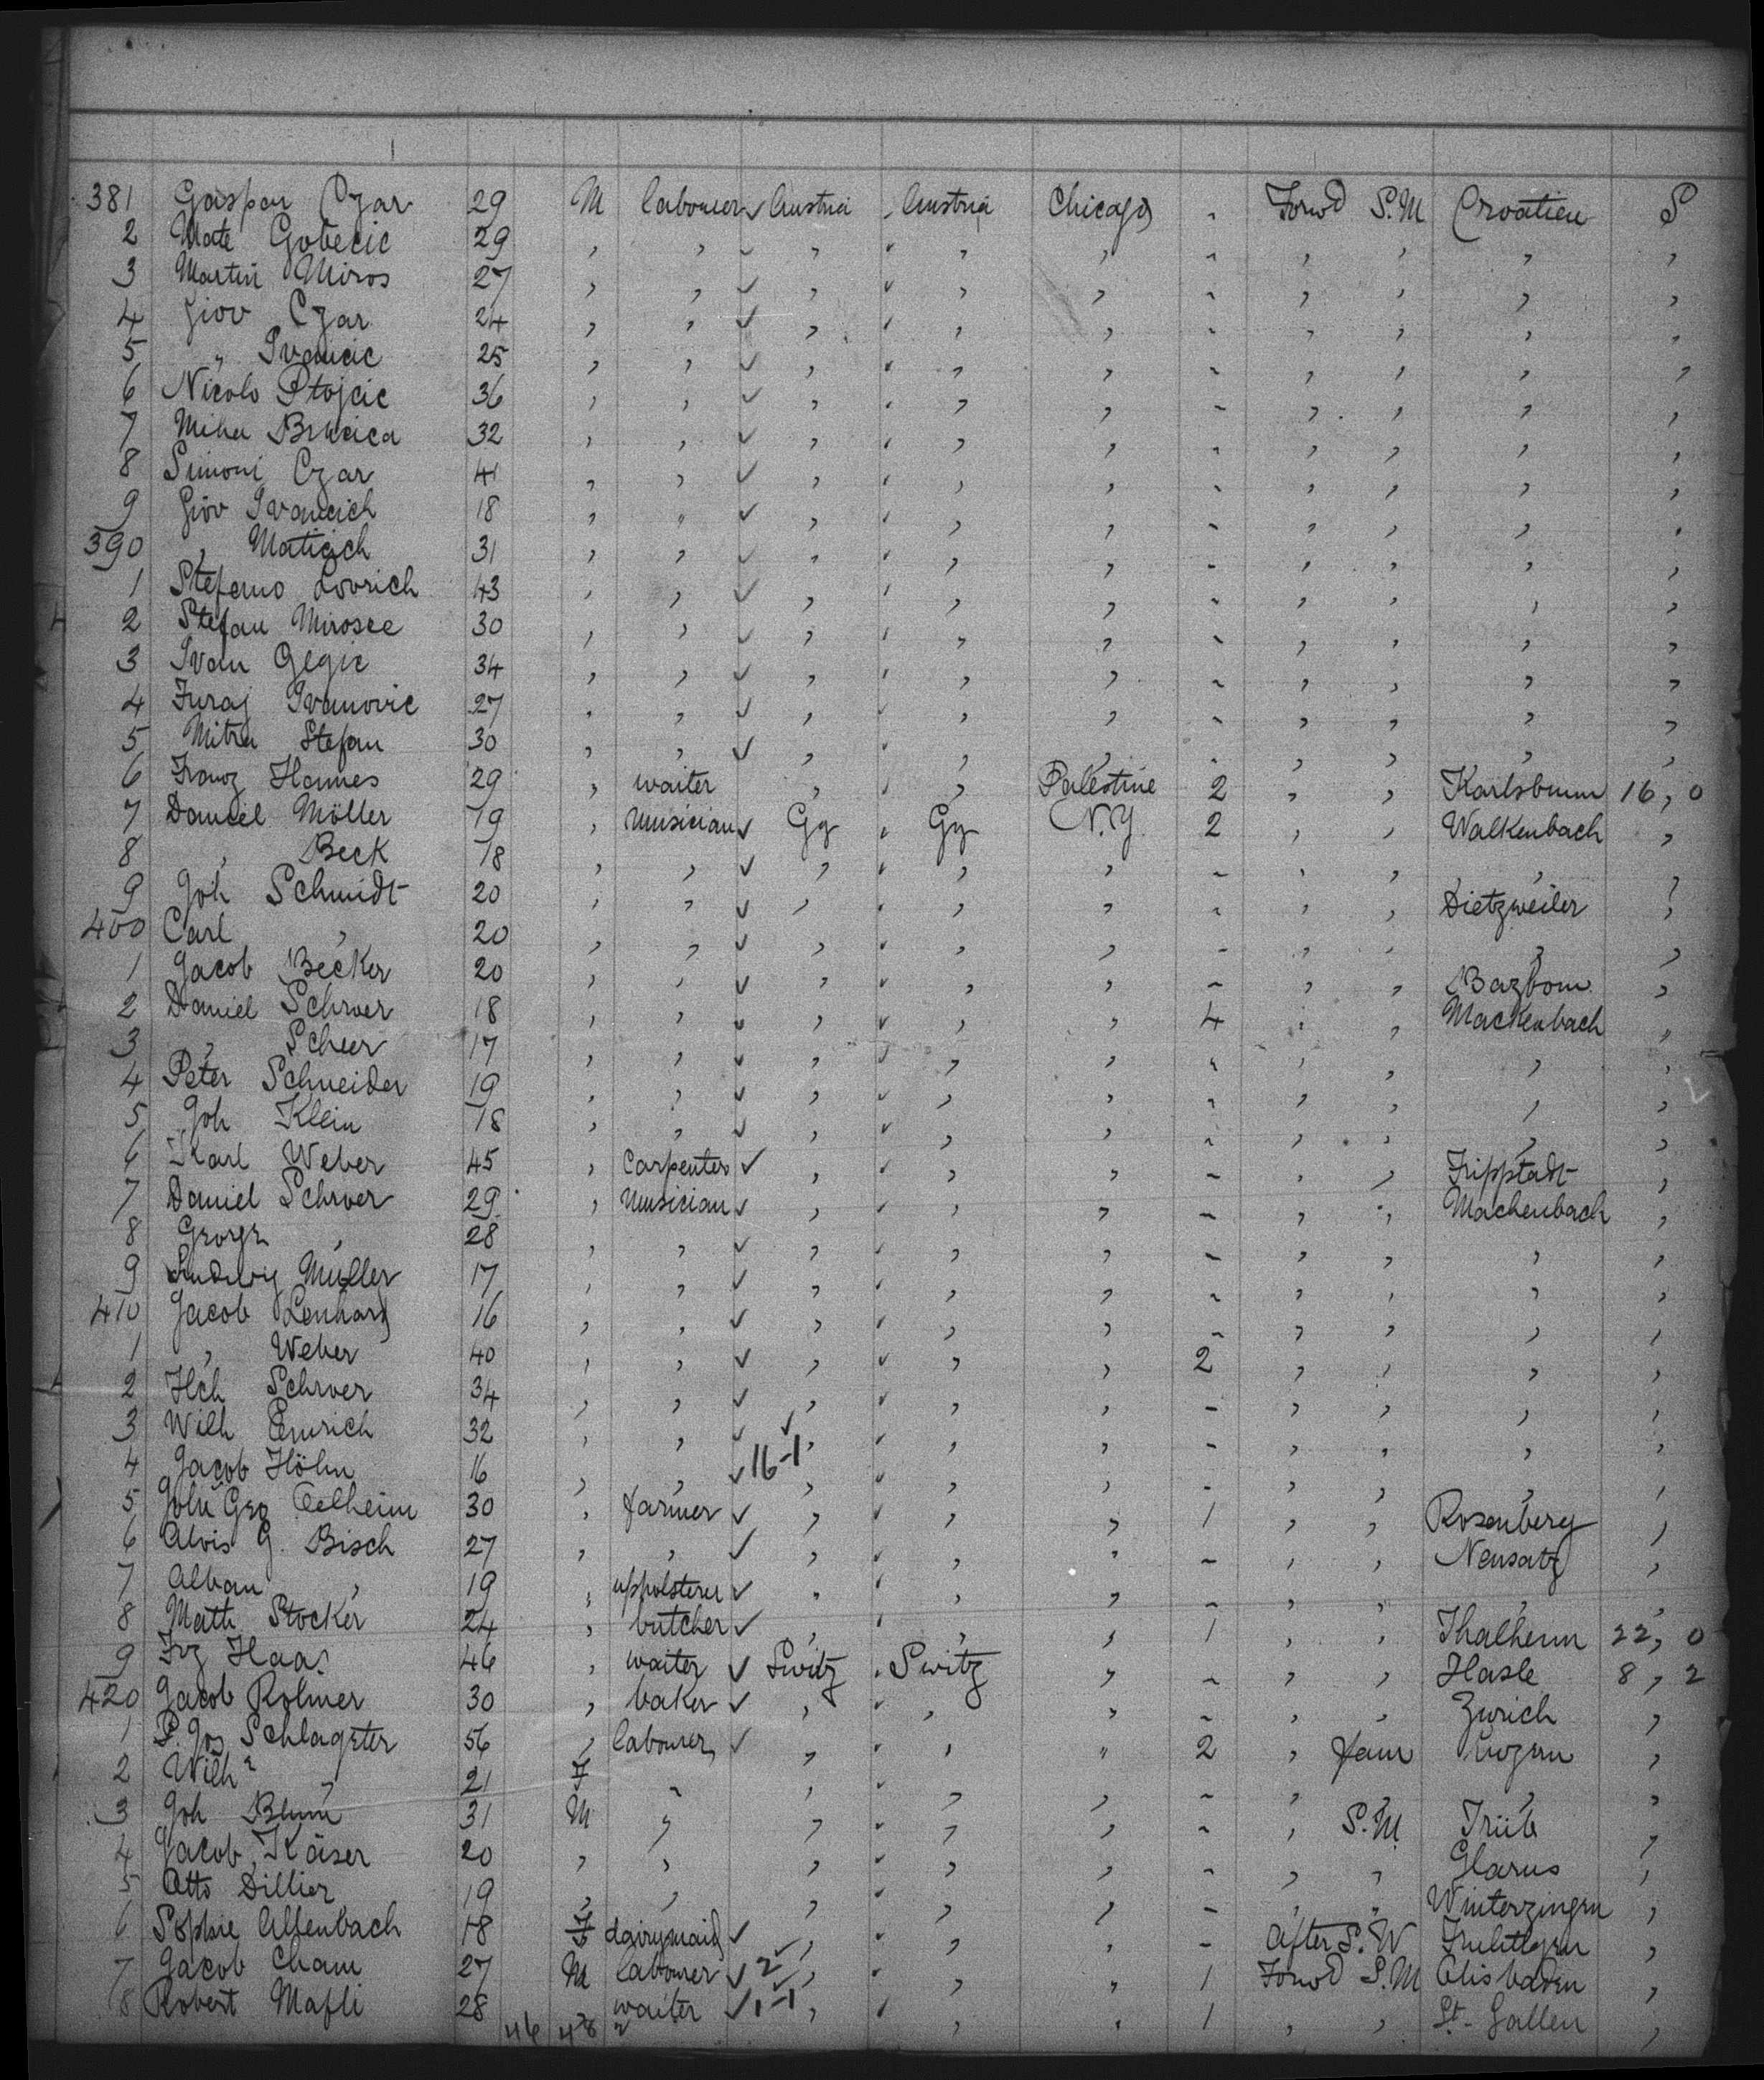 381 Gaspar Czar 29 M labourer ✓ Austria , Austria Chicago - Forwd S.M Croatien S
2 Mate Gobecic 29 , , ✓ , ✓ , , - , , , ,
3 Martin Miros 27 , , ✓ , ✓ , , - , , , ,
4 Giov Czar 24 , , ✓ , ✓ , , - , , , ,
5 " Ivancic 25 , , ✓ , ✓ , , - , , , ,
6 Nicolo Ptojcic 36 , , ✓ , ✓ , , - , , , ,
7 Miha 32 , , ✓ , ✓ , , - , , , ,
8 Simoni Czar 41 , , ✓ , ✓ , , - , , , ,
9 Giov Ivancich 18 , " ✓ , ✓ , , - , , , ,
390 , Maticich 31 , , ✓ , ✓ , , - , , , ,
1 Stefano Lovrich 43 , , ✓ , ✓ , , - , , , ,
2 Stefan Mirosee 30 , , ✓ , ✓ , , - , , , ,
3 Ivan Gegic 34 , , ✓ , ✓ , , - , , , ,
4 Juraj Ivanovic 27 , , ✓ , ✓ , , - , , , ,
5 Mitra Stefan 30 , , ✓ , ✓ , , - , , , ,
6 Franz Hannes 29 , waiter , ✓ , Palestine 2 , , Karlsbrunn 16, 0
7 Daniel Möller 19 , musician ✓ Gy , Gy N.Y. 2 , , Walkenbach ,
8 , Beck 18 , , ✓ , ✓ , , - , , , ,
9 Joh Schmidt 20 , , ✓ , ✓ , , - , , Dietzweiler ,
400 Carl , 20 , , ✓ , ✓ , , - , , , ,
1 Jacob Becker 20 , , ✓ , ✓ , , - , , ,
2 Daniel Schroer 18 , , ✓ , ✓ , , 4 , , Mackenbach "
3 , Scheer 17 , , ✓ , ✓ , , - , , , ,
4 Peter Schneider 19 , , ✓ , ✓ , , - , , , ,
5 Joh Klein 18 , , ✓ , ✓ , , - , , , ,
6 Karl Weber 45 , carpenter ✓ , ✓ , , - , , Trippstadt ,
7 Daniel Schroer 29 , musician ✓ , ✓ , , - , , Machenbach ,
8 George , 28 , , ✓ , ✓ , , - , , , ,
9 Ludwig Müller 17 , , ✓ , ✓ , , - , , , ,
410 Jacob Lenhard 16 , , ✓ , ✓ , , - , , , ,
1 , Weber 40 , , ✓ , ✓ , , 2 , , , ,
2 Hch Schroer 34 , , ✓ , ✓ , , - , , , ,
3 Wilh Emrich 32 , , ✓ ✓ , ✓ , , - , , , ,
4 Jacob Höhn 16 , , ✓ 16-1 , ✓ , , - , , , ,
5 John Geo Oelheim 30 , farmer ✓ , ✓ , , 1 , , Rosenberg ,
6 Alois G. Bisch 27 , , ✓ , ✓ , , - , , Neusatz ,
7 Alban , 19 , upholsterer ✓ , ✓ , , - , , , ,
8 Math Stocker 24 , butcher ✓ , ✓ , , 1 , , Thalheim 22, 0
9 Frz Haas 46 , waiter ✓ Switz , Switz , - , , Hasle 8, 2
420 Jacob Rohner 30 , baker ✓ , ✓ , , - , , Zurich ,
1 P. Jos Schlageter 56 , labourer, ✓ , ✓ , " 2 , fam Luzern ,
2 Wilhe , 21 F - , ✓ , , - , , , ,
3 Joh Blum 31 M , , ✓ , , - , S.M. Trüb ,
4 Jacob Käser 20 , , , ✓ , , - , , Glarus ,
5 Otto Dillier 19 , , , ✓ , , - , , ,
6 Sophie Allenbach 18 F dairymaid ✓ , ✓ , , - After S.W ,
7 Jacob Cham 27 M labourer ✓ 2 ✓ , ✓ , , 1 Forwd S.M ,
8 Robert Mafli 28 , waiter ✓ 1-1 , ✓ , , 1 , , St. Gallen ,
46 48 2